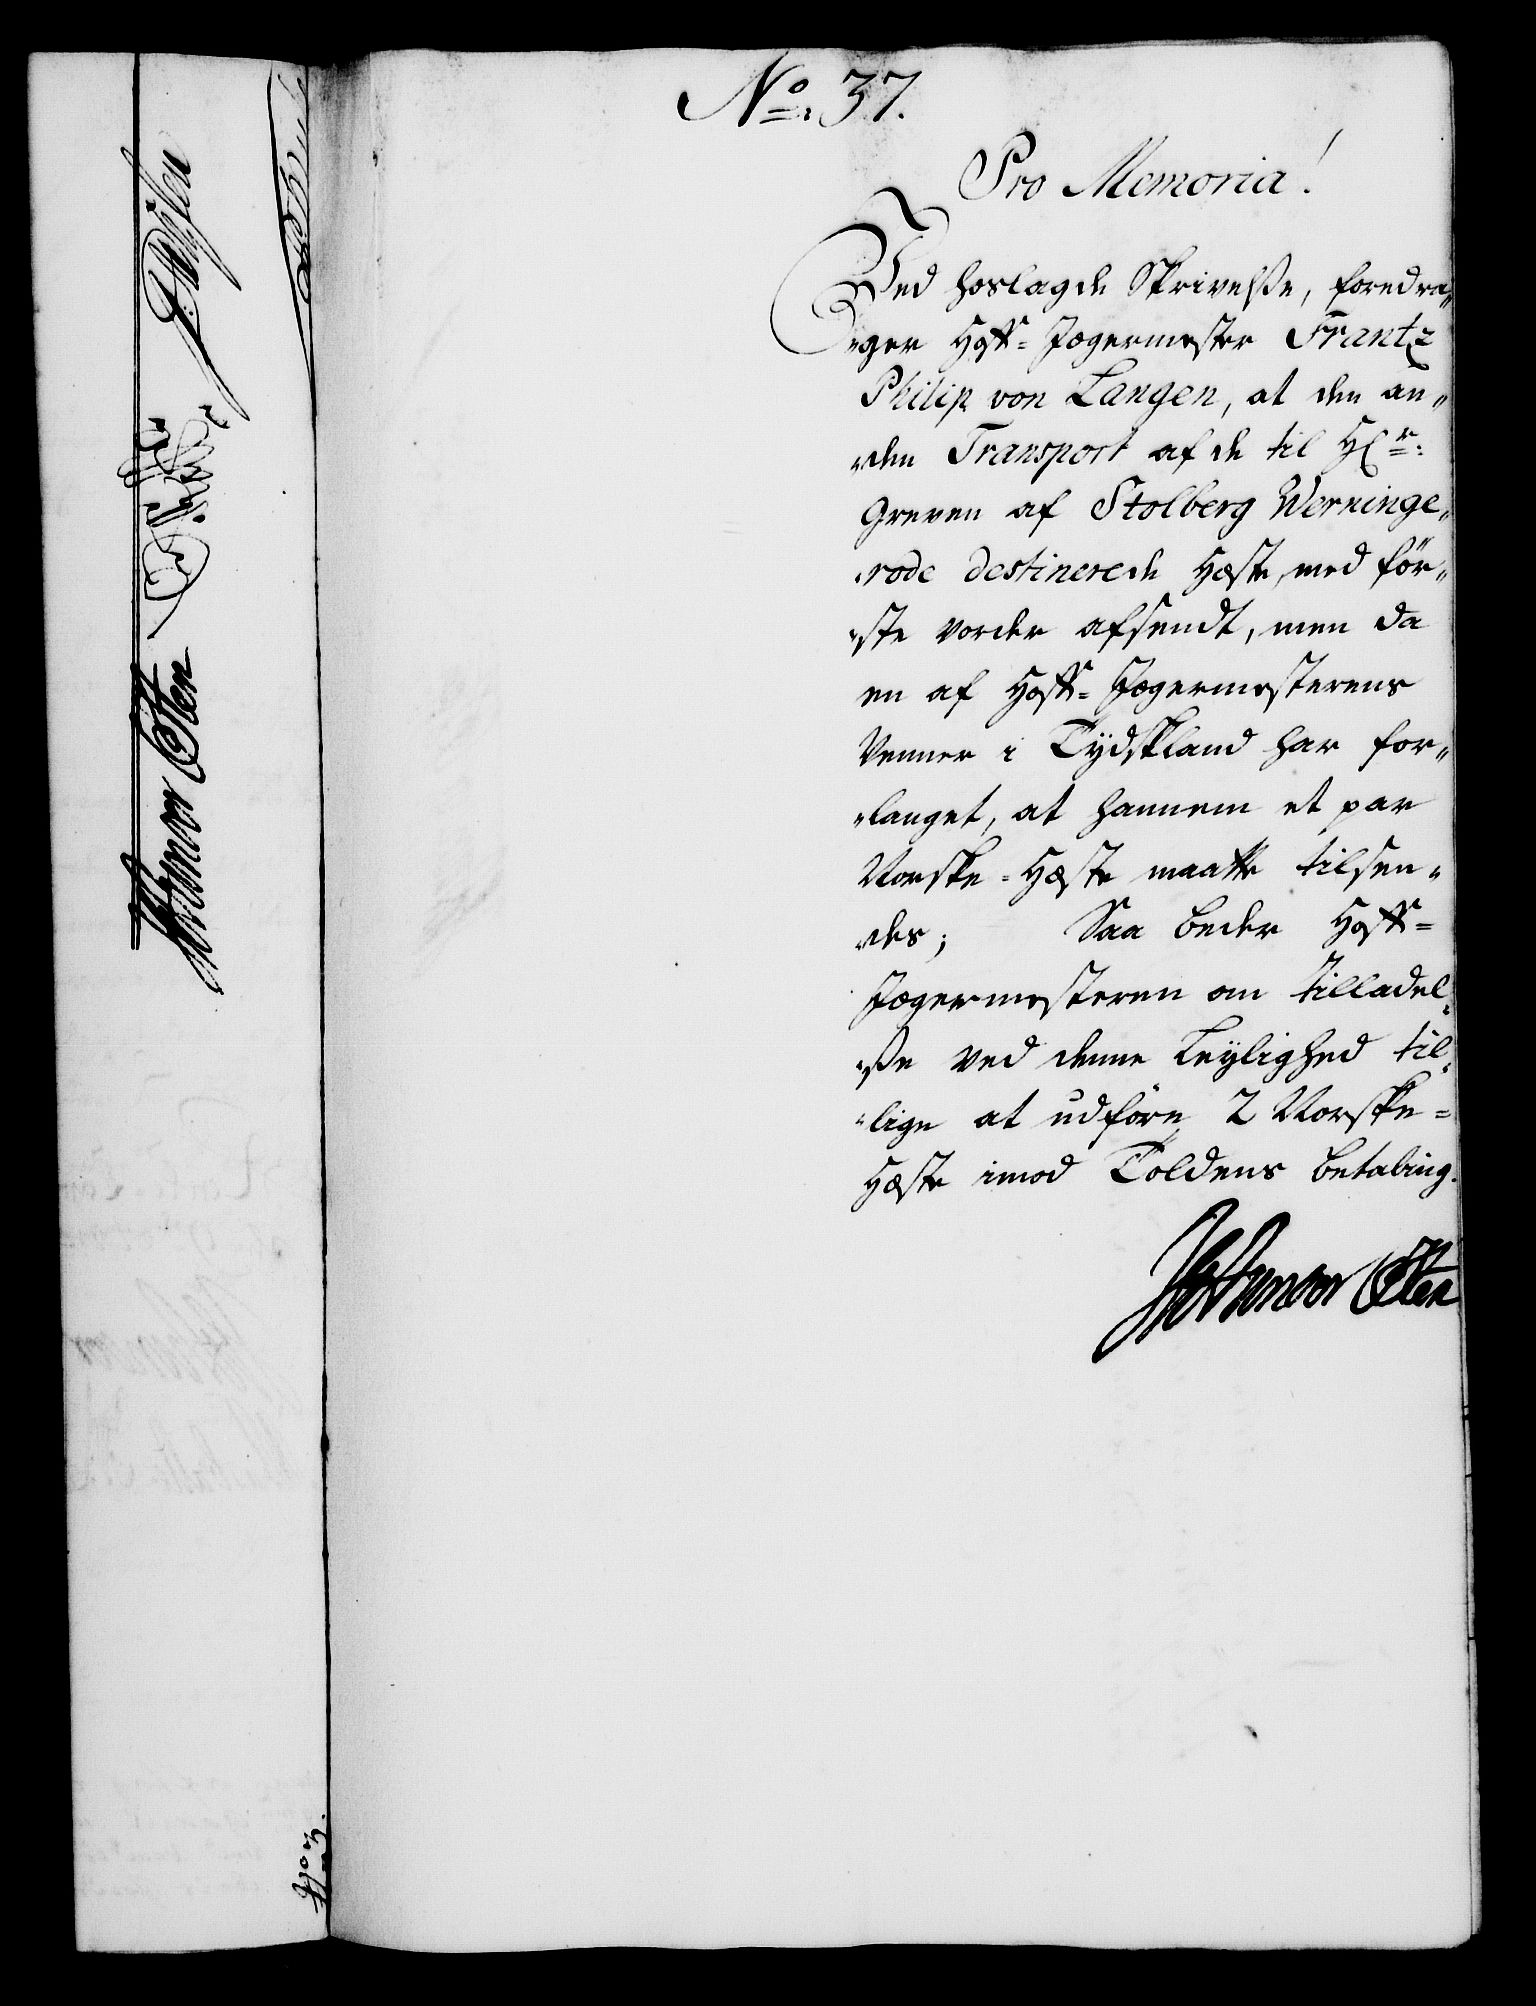 No. 37.
Pro Memoria!
Ved hoslagde Skrivelße, foredra„
„ger Hoff-Jægermester Frantz
Philip von Langen, at den an„
„den Transport af de til Hr:
Greven af Stolberg Werninge„
„rode destinerede Hæste, med för„
„ste vorder afsendt, men da
en af Hoff-Jægermesterens
Venner i Tydskland har for„
„langet, at hannem et par
Norske-Hæste maatte tilsen„
„des; Saa beder Hoff-
Jægermesteren om Tilladel„
„ße ved denne Leylighed til„
„lige at udföre 2 Norske-
Hæste imod Toldens betaling.
Osten
Osten